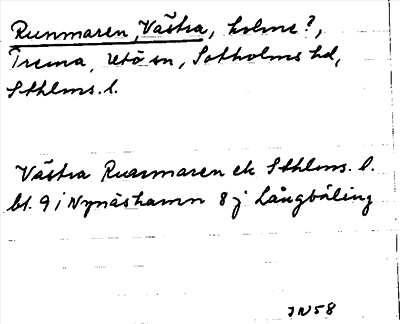 Runmaren, Västra, holme?,
Trema, Utö sn, Sotholms hd,
Sthlms. l.
Västra Runmaren ek Sthlms. l.
bl. 9 i Nynäshamn 8 j Långbåling
JN58